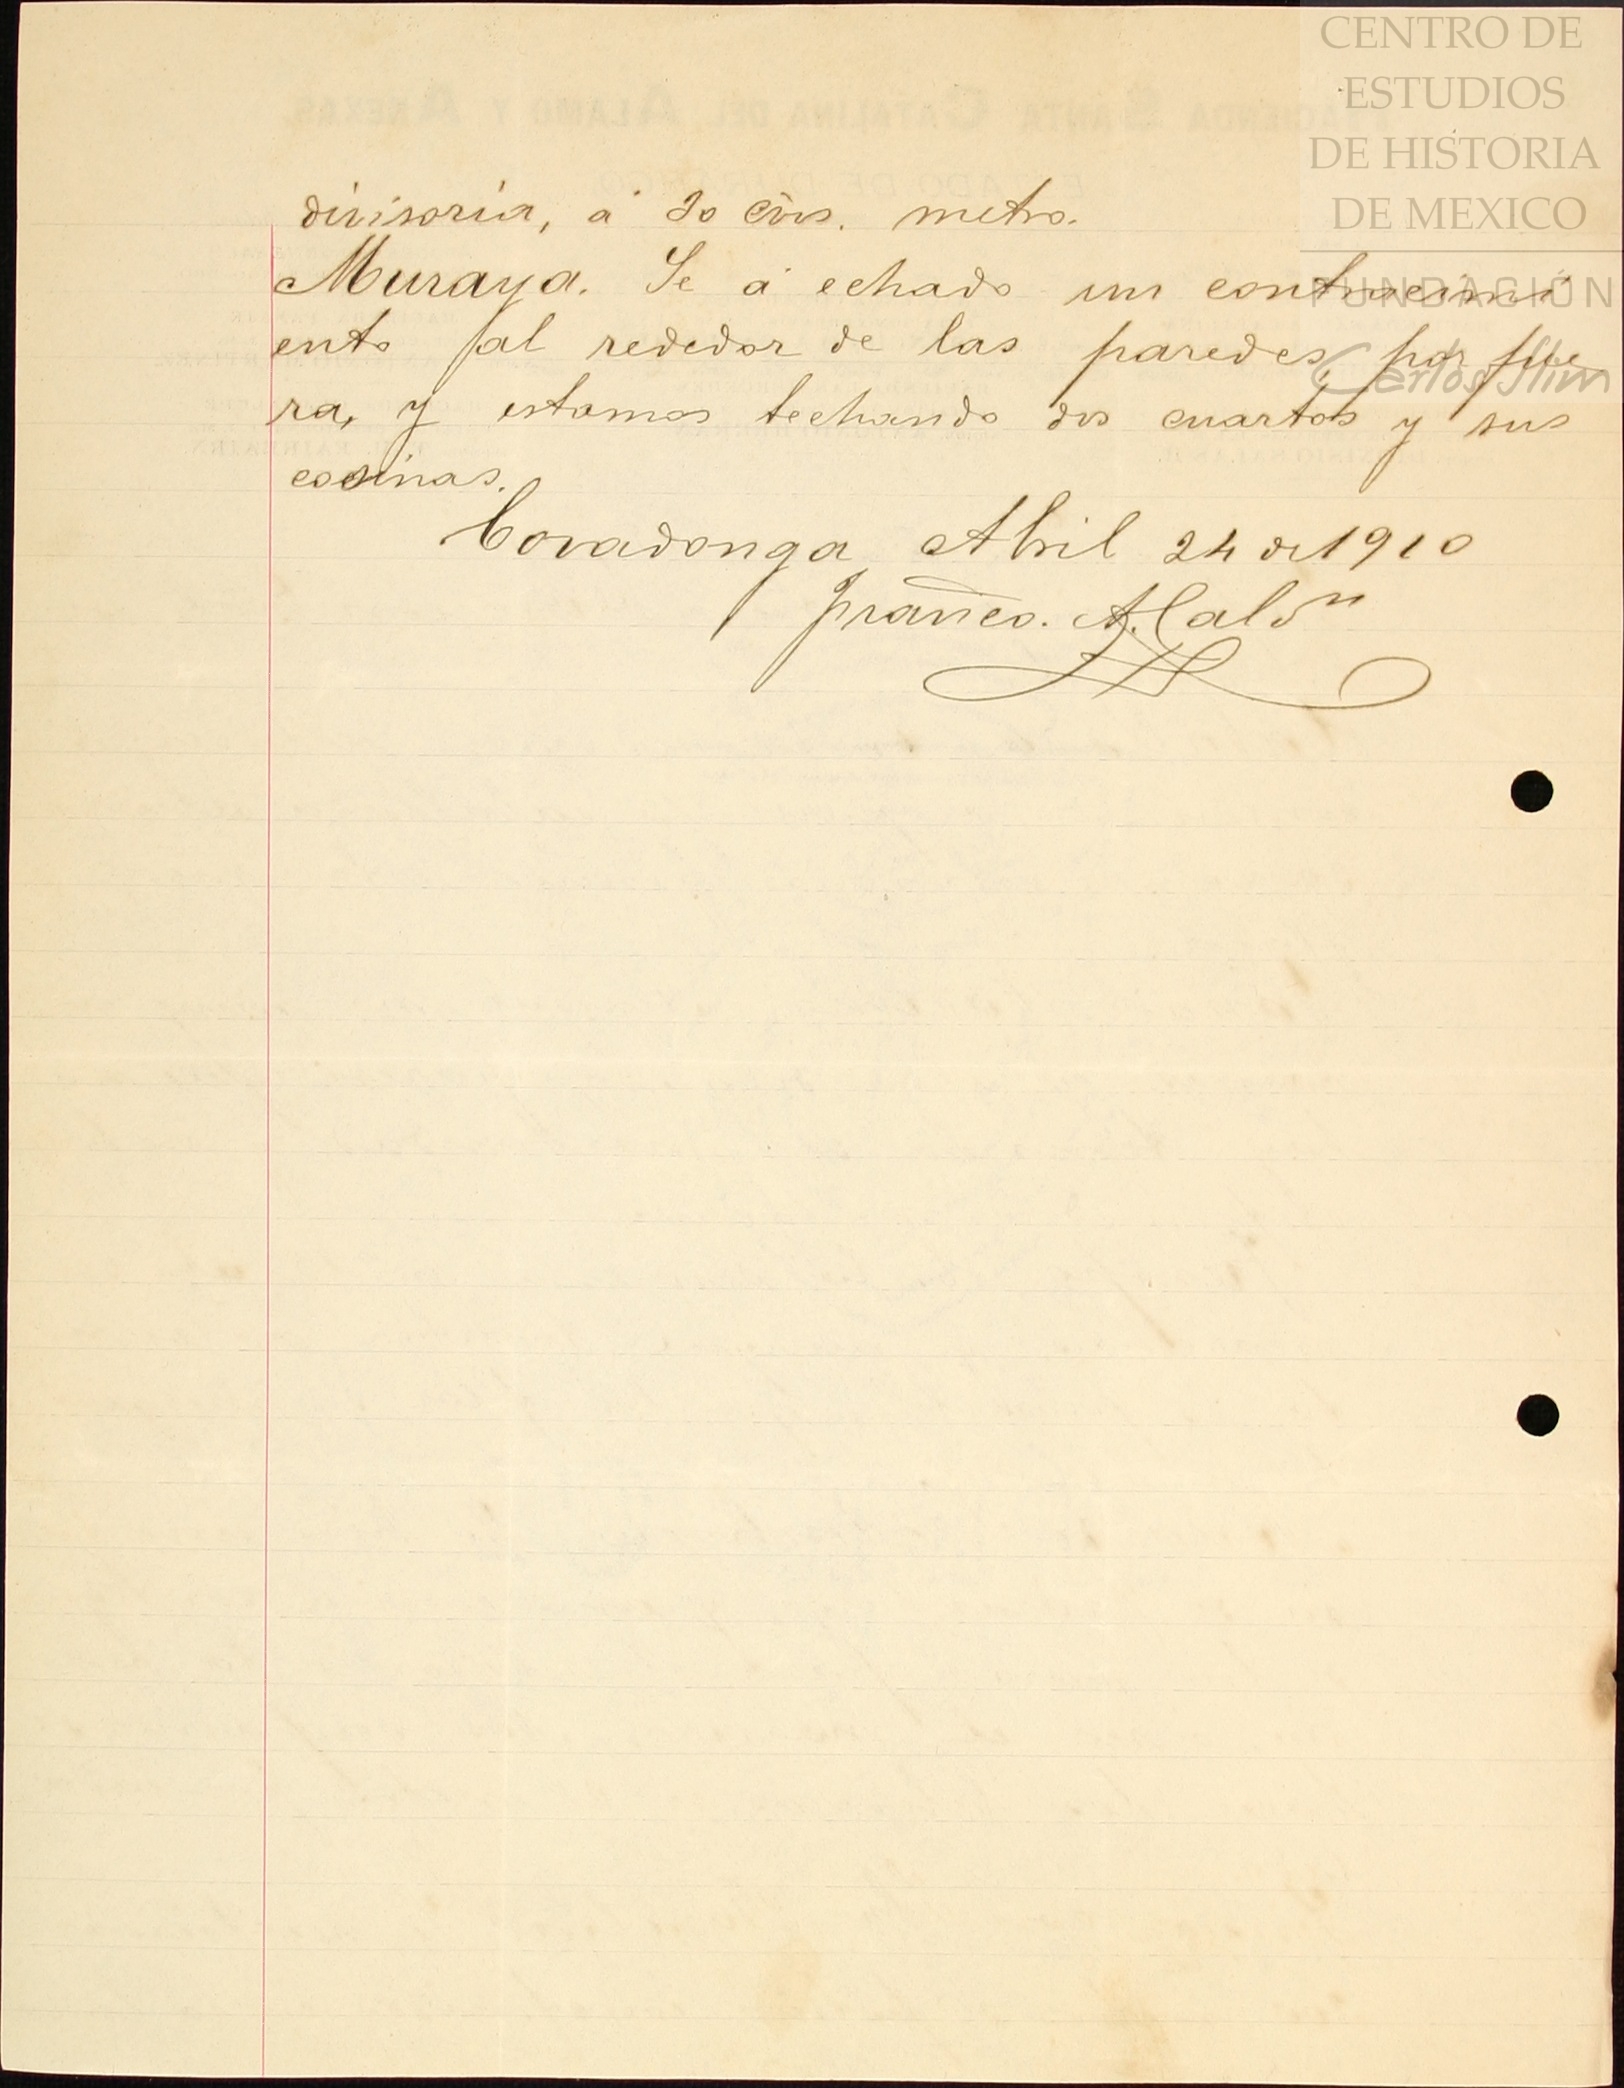 CENTRO DE
ESTUDIOS
DE HISTORIA
DE MEXICO
FUNDACIÓN
Carlos Slim
HACIENDA SANTA CATALINA DEL ALAMO Y ANEXAS
divisoria, á 20 cvs. metro.
Muraya. Se á echado un contracimi
ento al rededor de las paredes, por fue
ra, y estamos techando dos cuartos y sus
cocinas.
Covadonga Abril 24 de 1910
Franco. A. Calxn